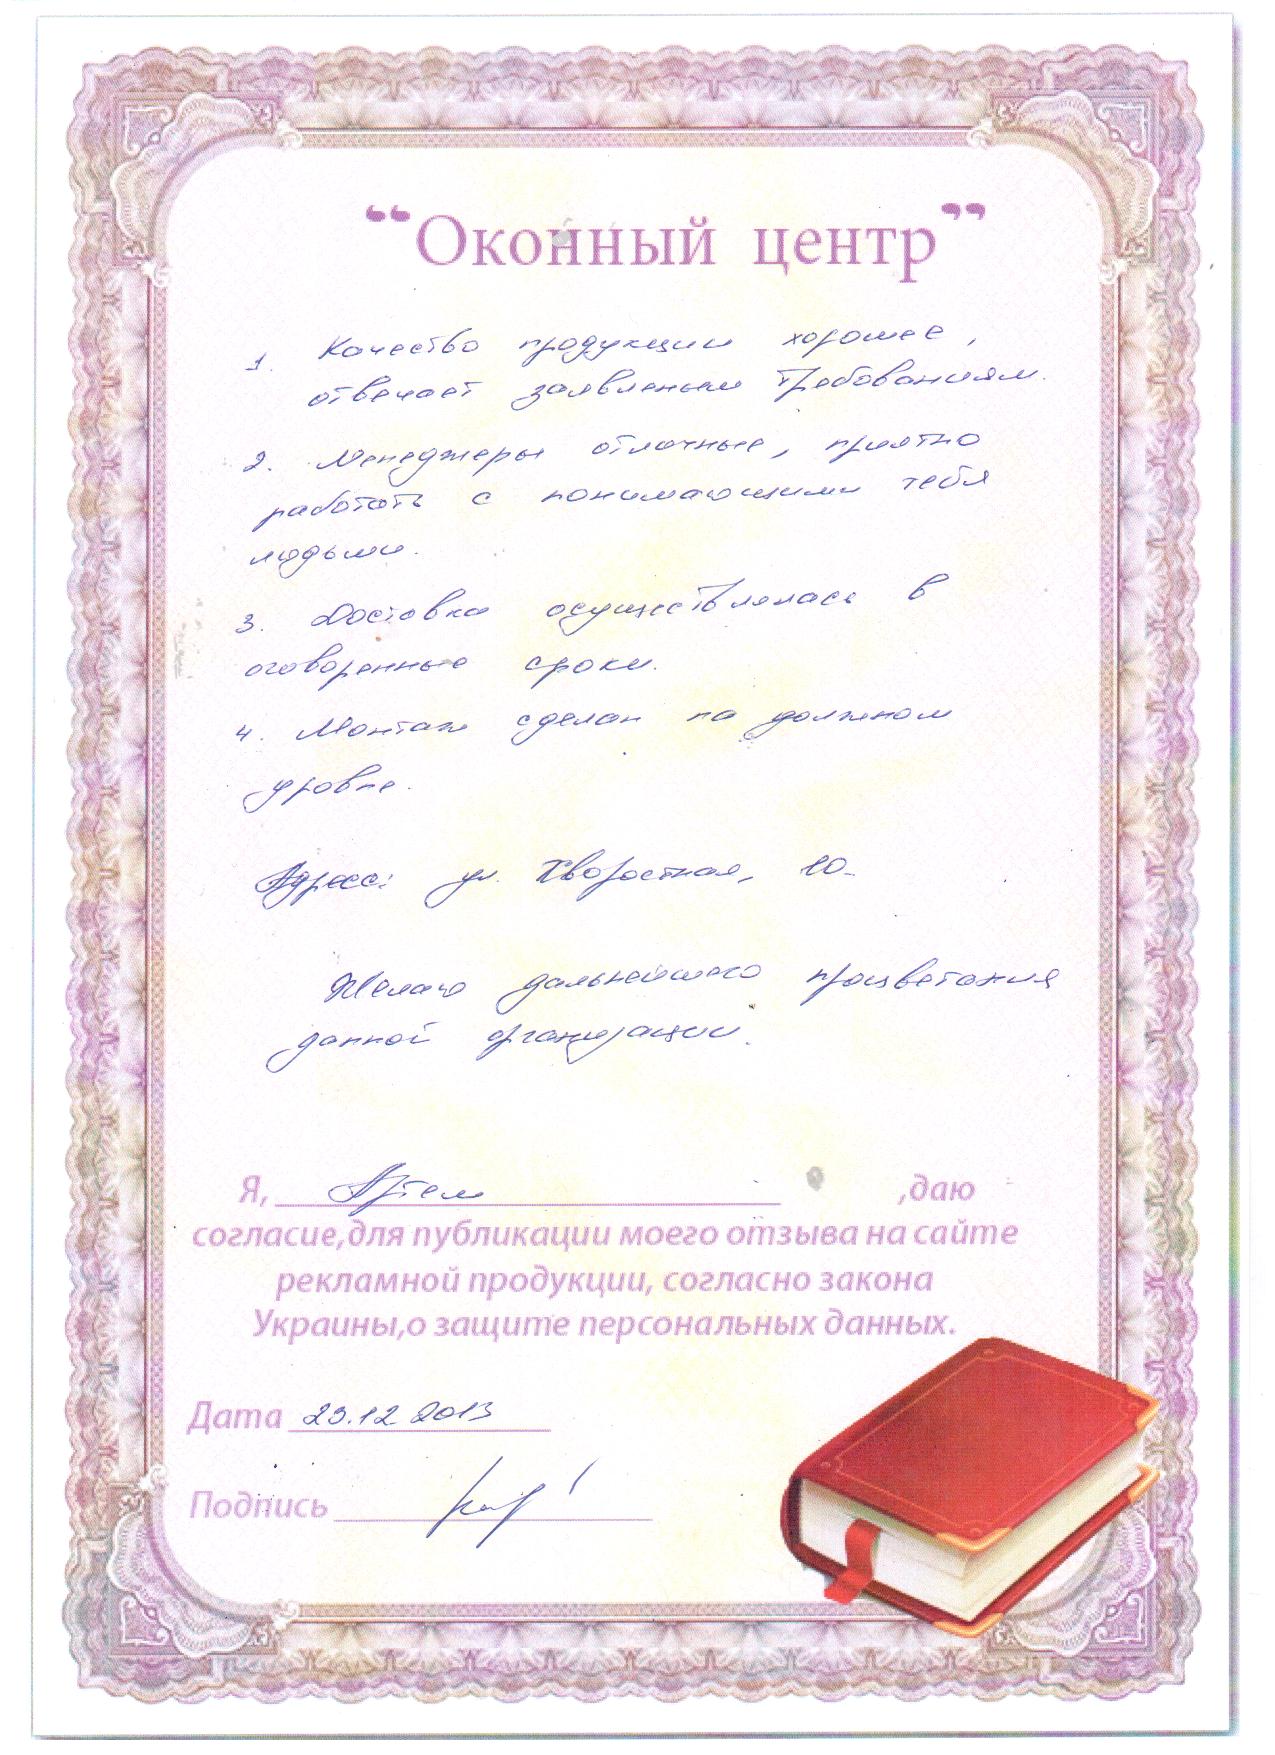 “Оконный центр”
1. Качество продукции хорошее,
отвечает заявленым требованиям.
2. Менеджеры отличные, приятно
работать с понимающими тебя
людьми.
3. Доставка осуществлялась в
оговоренные сроки.
4. Монтаж сделан на должном
уровне.
Адрес: ул. Хворостная, 10
Желаю дальнейшего процветания
данной организации.
Я, Артем ,даю
согласие,для публикации моего отзыва на сайте
рекламной продукции, согласно закона
Украины,о защите персональных данных.
Дата 23.12.2013
Подпись